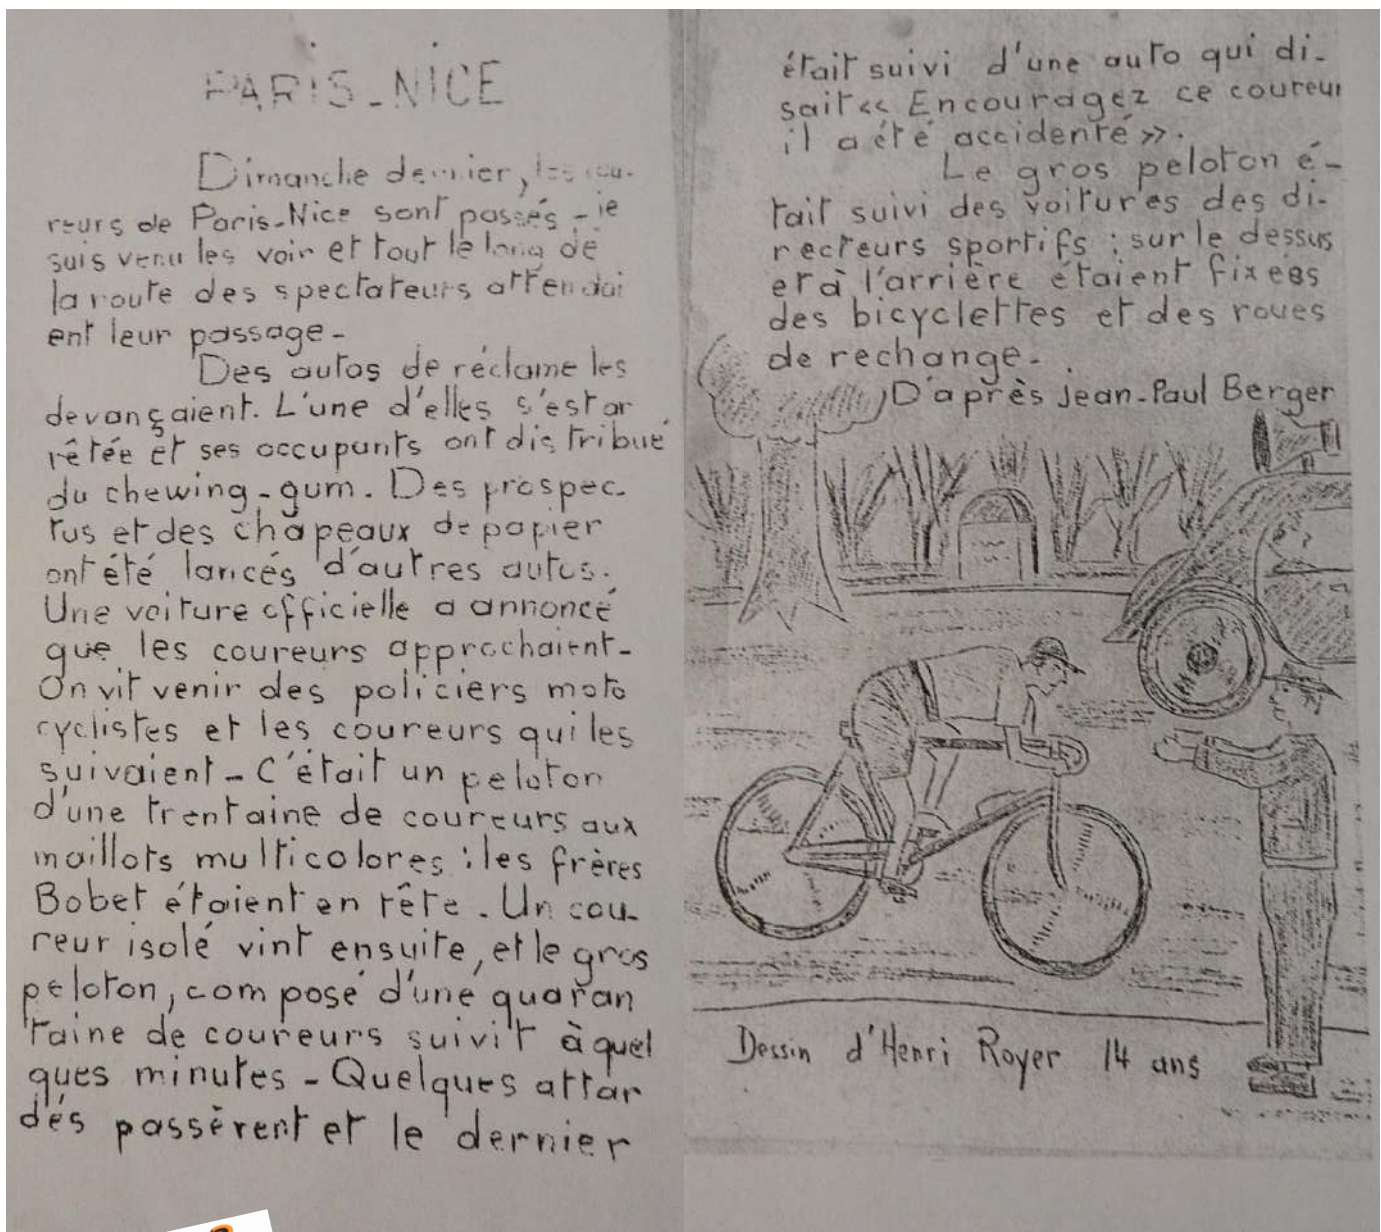 PARIS_NICE
Dimanche dernier, les cou-
reurs de Paris-Nice sont passés - je
suis venu les voir et tout le long de
la route des spectateurs attendai
ent leur passage -
Des autos de réclame les
devançaient. L'une d'elles s'est ar
rêtée et ses occupants ont distribué
du chewing-gum. Des prospec-
tus et des chapeaux de papier
ont été lancés d'autres autos.
Une voiture officielle a annoncé
que les coureurs approchaient -
On vit venir des policiers moto
cyclistes et les coureurs qui les
suivaient - C'était un peloton
d'une trentaine de coureurs aux
maillots multicolores : les frères
Bobet étaient en tête. Un cou-
reur isolé vint ensuite, et le gros
peloton, composé d'une quaran
taine de coureurs suivit à quel
ques minutes - Quelques attar
dés passèrent et le dernier
était suivi d'une auto qui di-
sait << Encouragez ce coureur
il a été accidenté >>.
Le gros peloton é-
tait suivi des voitures des di-
recteurs sportifs : sur le dessus
et à l'arrière étaient fixées
des bicyclettes et des roues
de rechange -
D'après Jean-Paul Berger
Dessin d'Henri Royer 14 ans